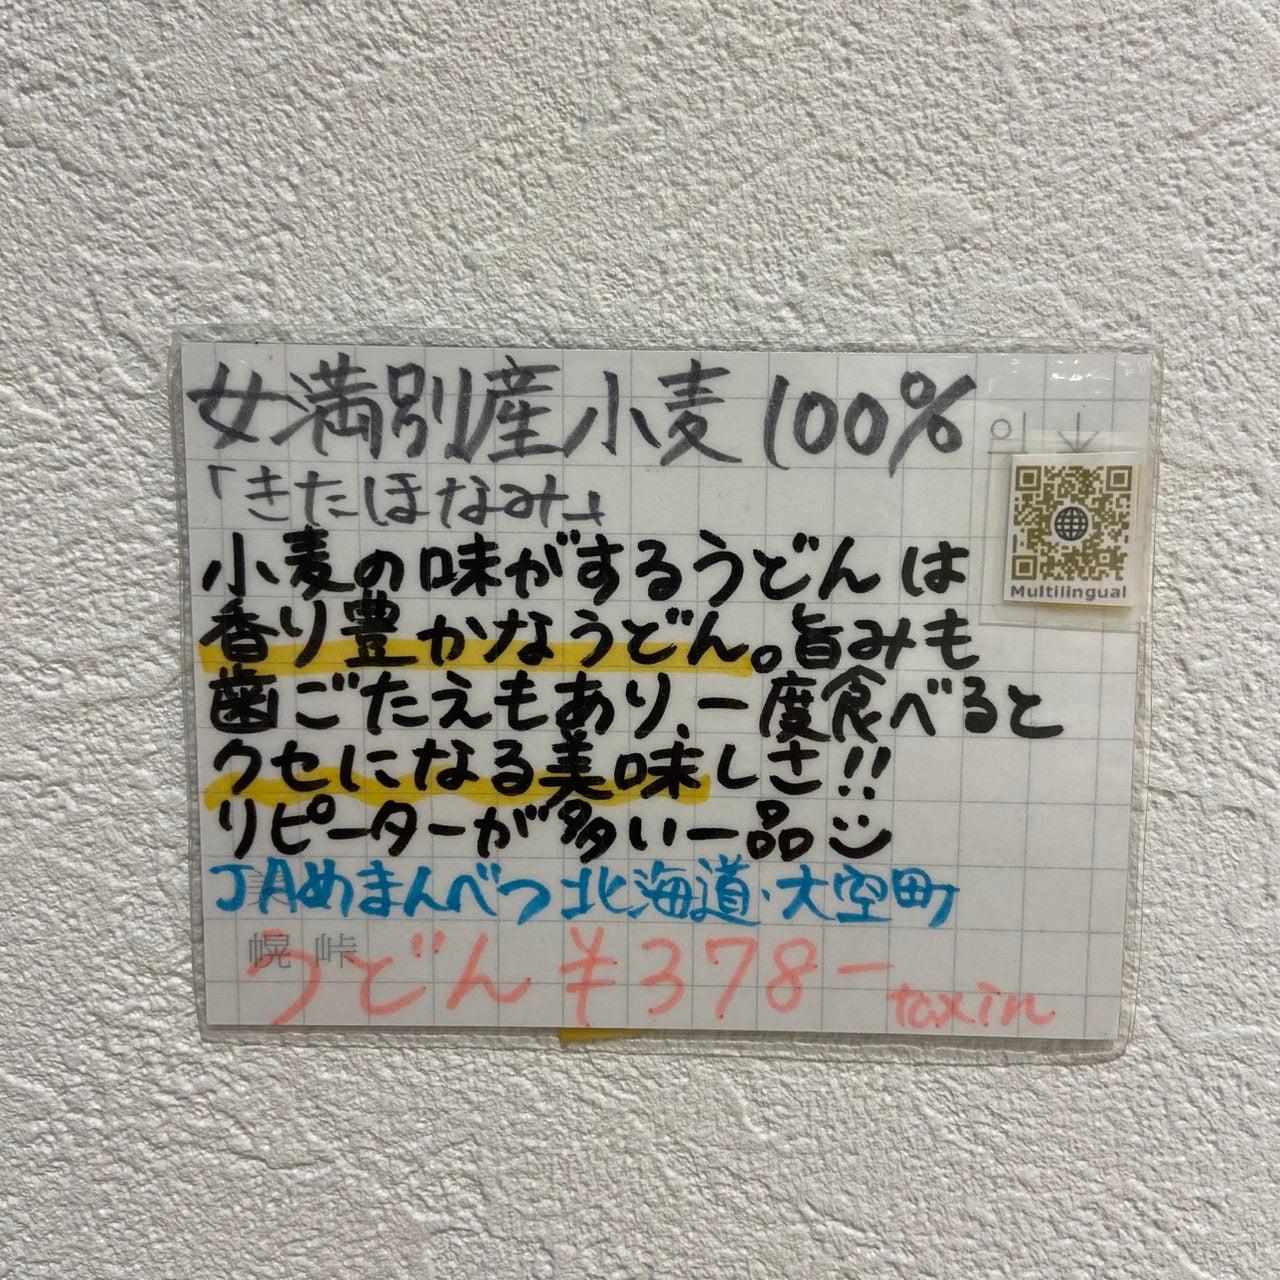 女満別産小麦100%
「きたほなみ」
小麦の味がするうどんは
香り豊かなうどん。旨みも
歯ごたえもあり、一度食べると
クセになる美味しさ!!
リピーターが多い一品
JAめまんべつ 北海道・大空町
うどん ¥378-
taxin
Multilingual
幌 峠